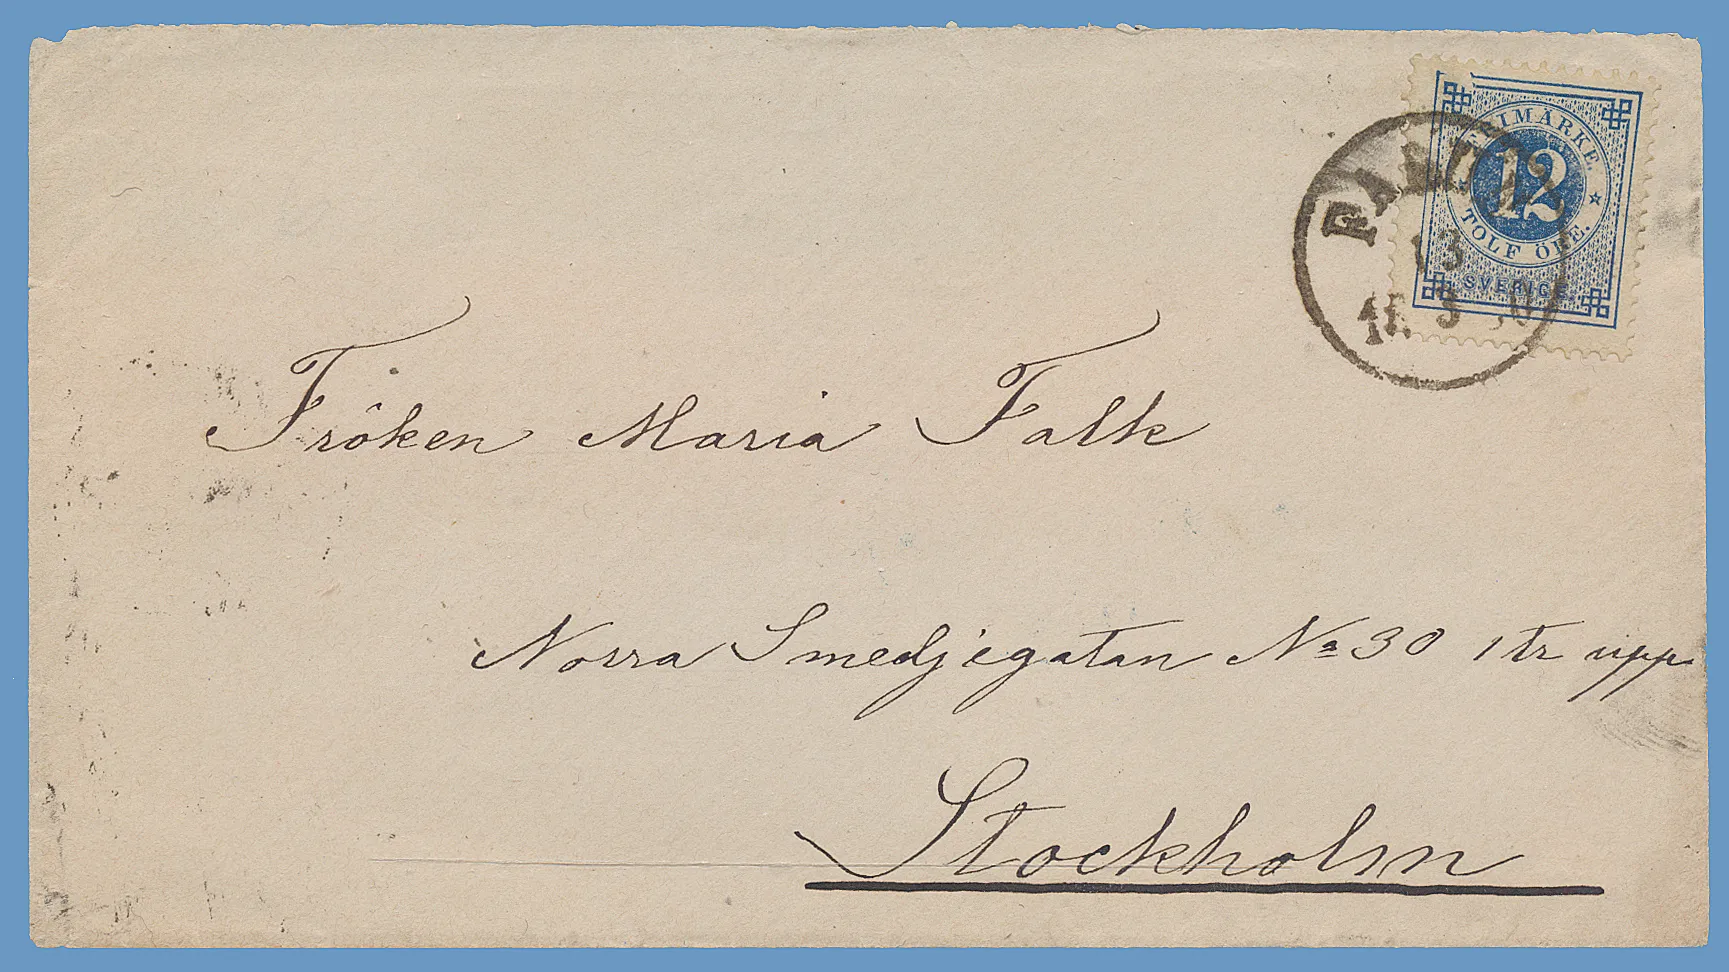 FRIMÄRKE.
12
TOLF ÖRE.
SVERIGE
Fröken Maria Falk
Norra Smedjegatan No 30 1 tr upp.
Stockholm